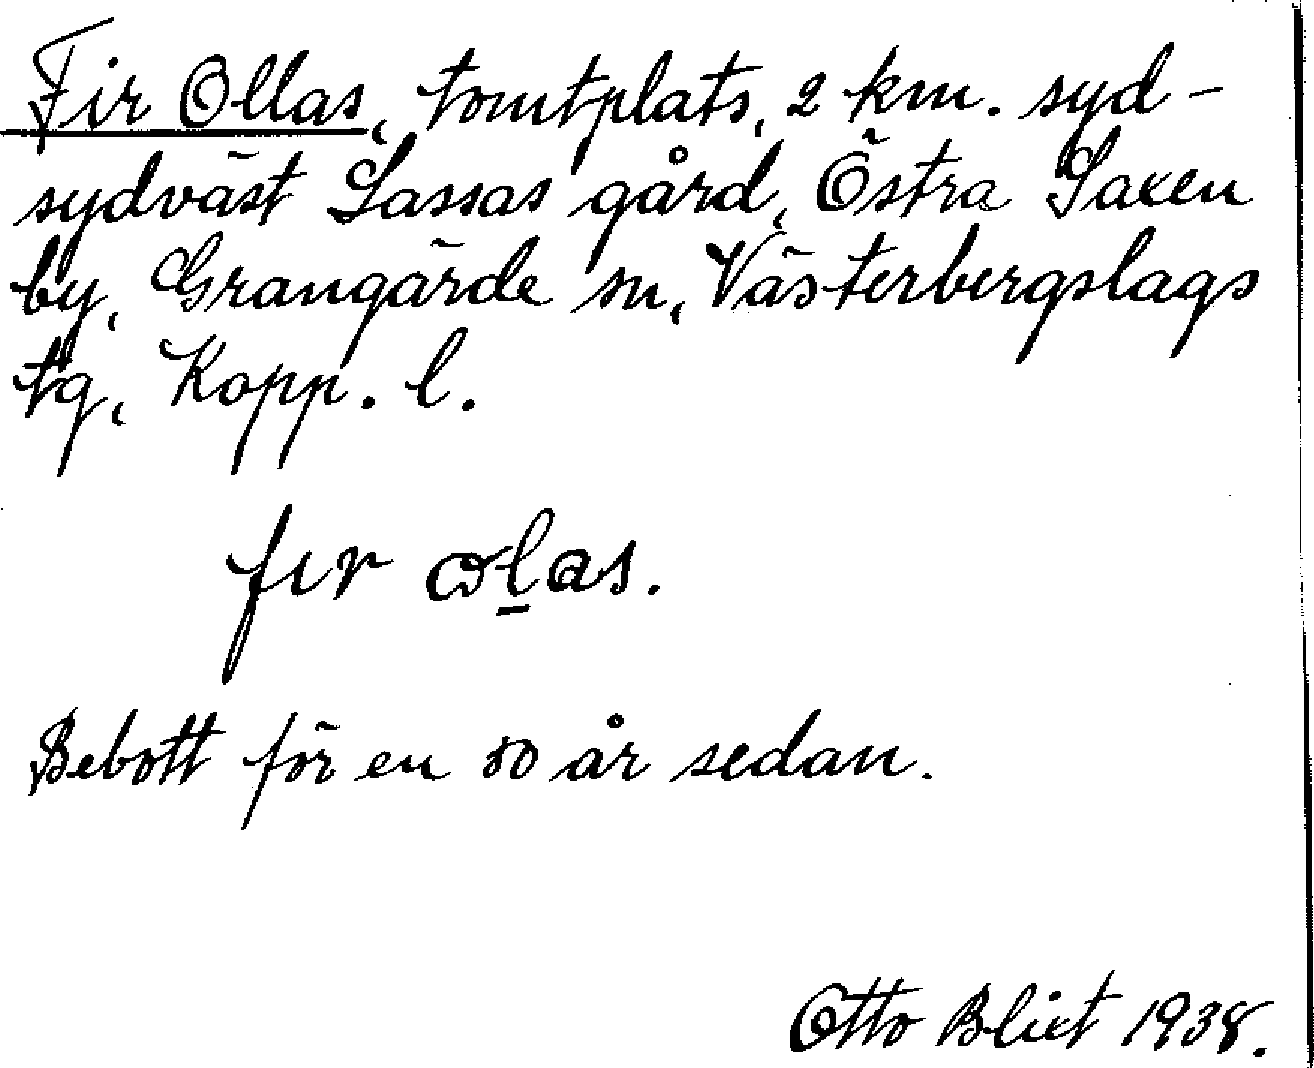 Fir Ollas, tomtplats, 2 km. syd-
sydväst Lassas gård, Östra Saxen
by, Grangärde sn, Västerbergslags
tg, Kopp. l.
fır ωl̠as.
Bebott för en 80 år sedan.
Otto Blixt 1938.